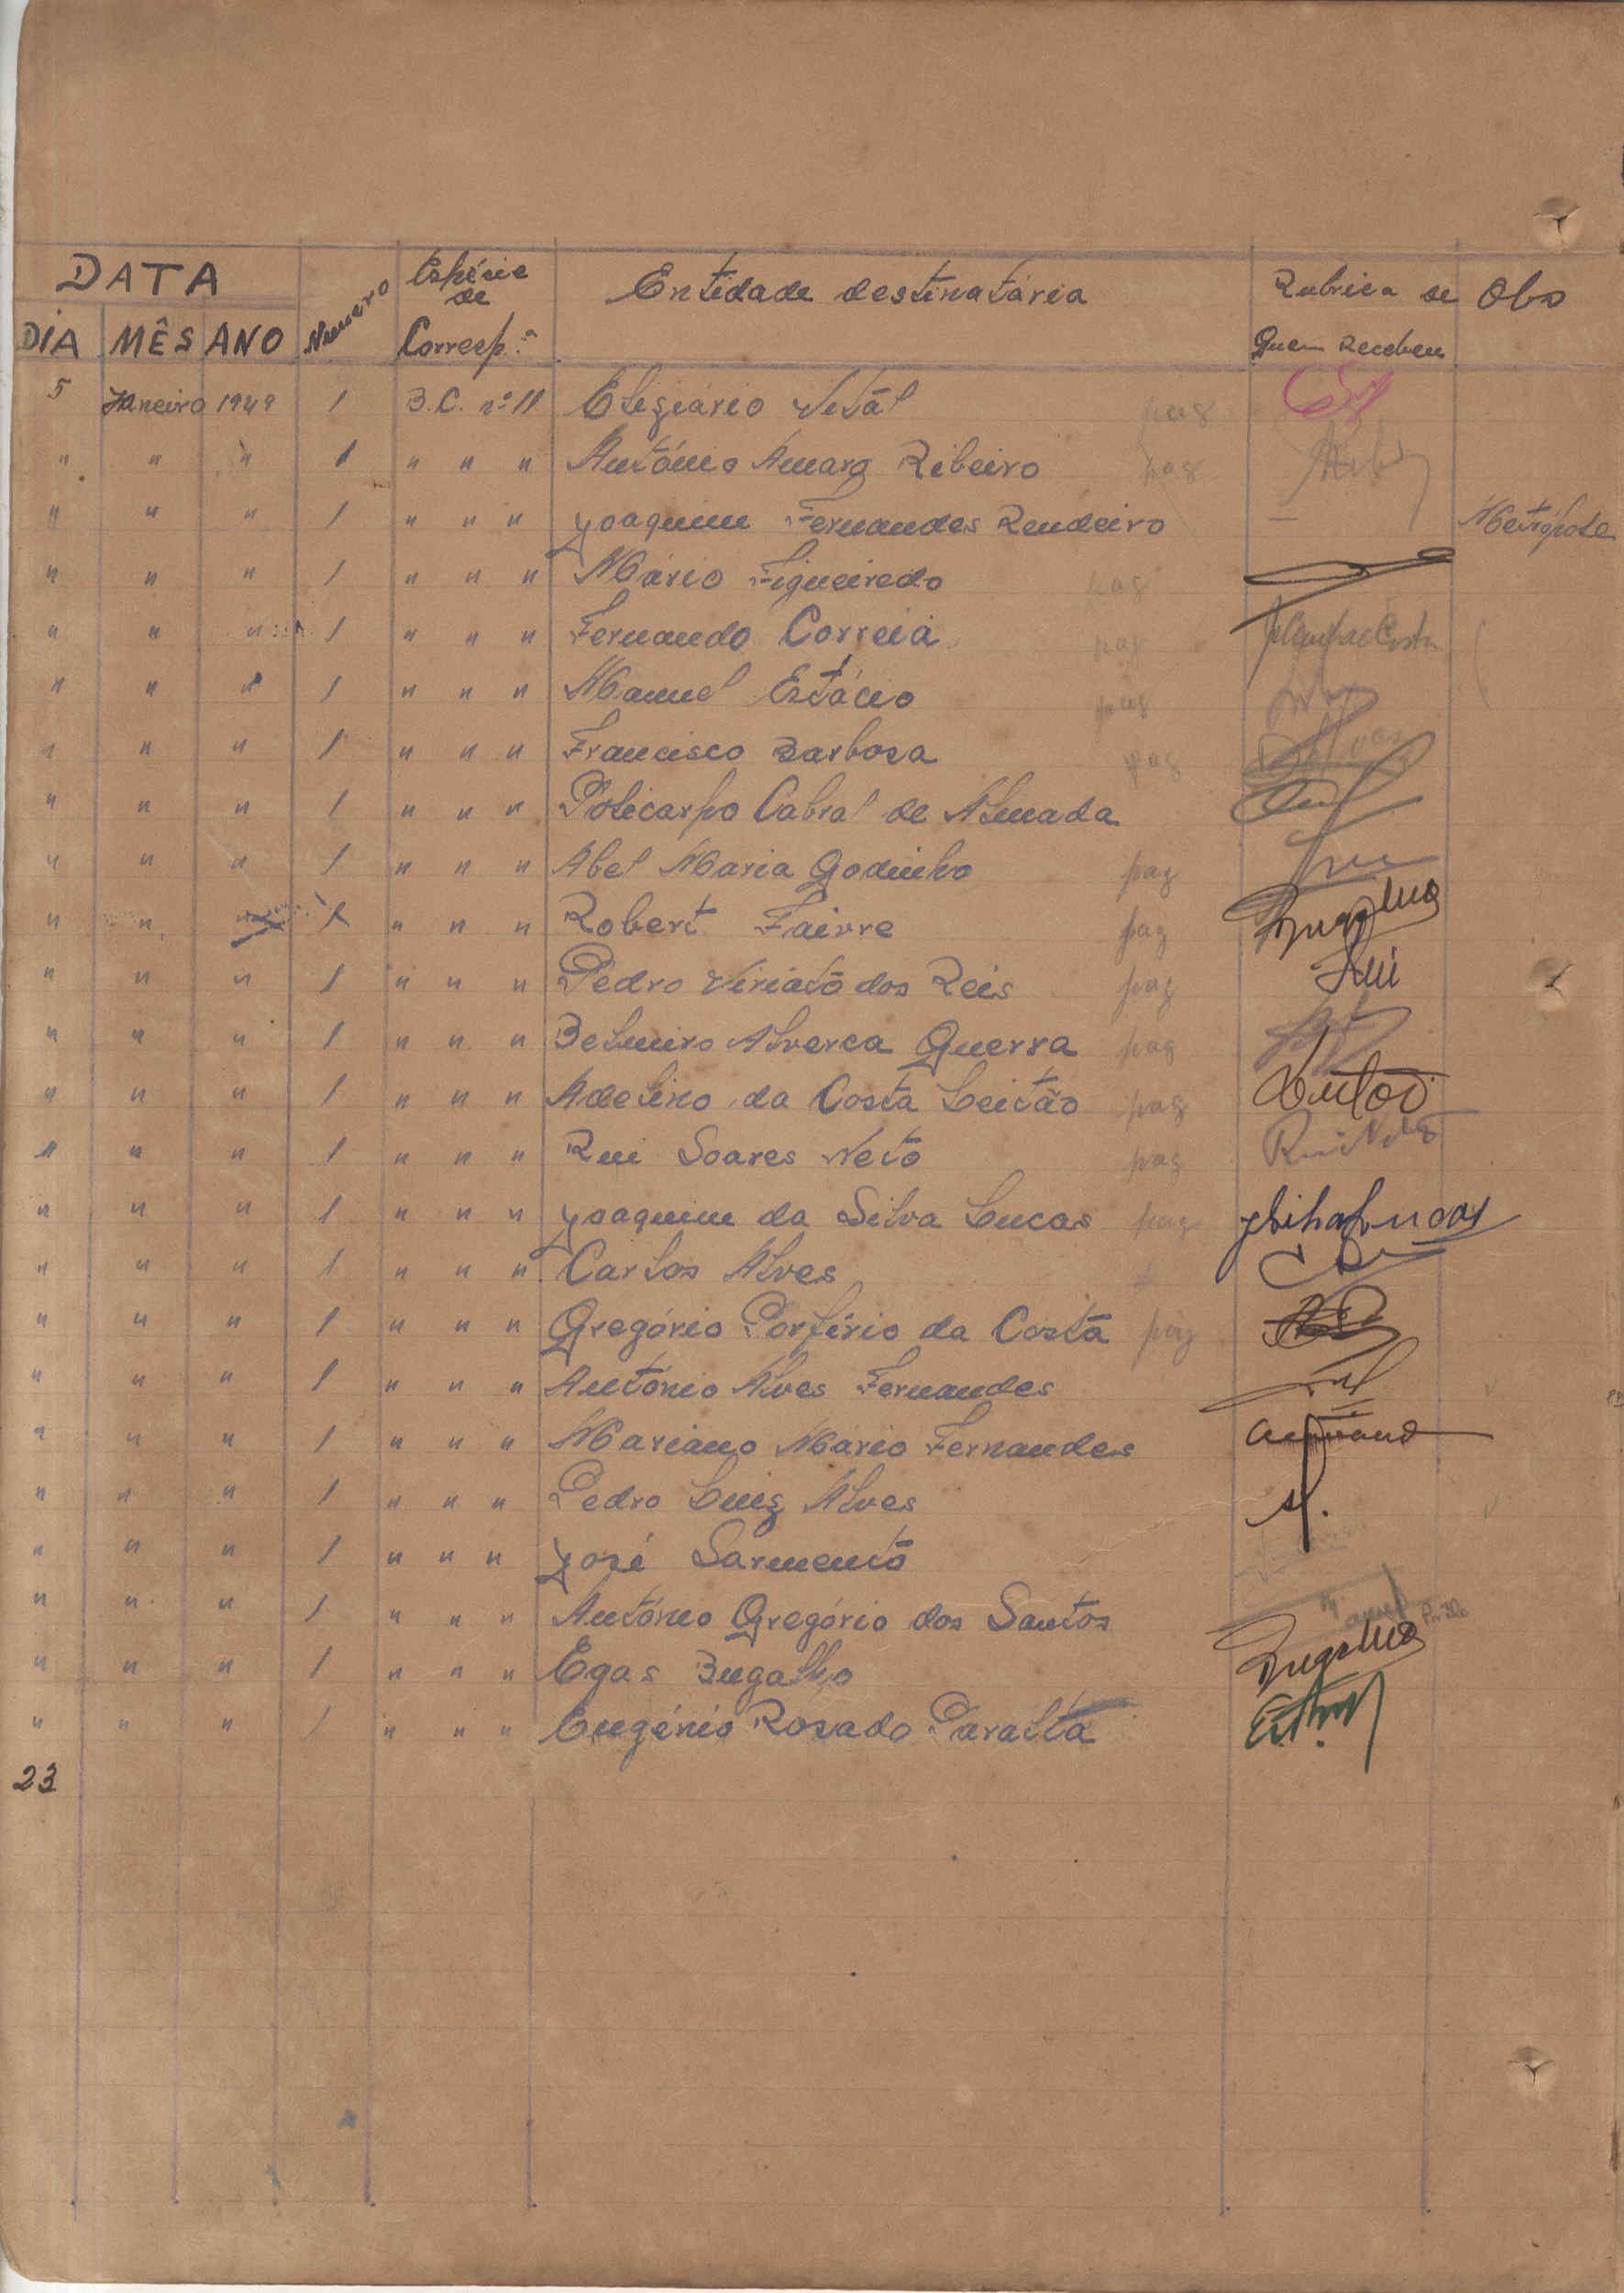 DATA Número Espécie de Corresp.ª Entidade destinatária Rubrica de Quem Recebeu Obs
DIA MÊS ANO
5 Janeiro 1949 1 B.C. nº 11 Eligiário Vital pag
" " " 1 " " " António Amaro Ribeiro pag
" " " 1 " " " Joaquim Fernandes Rendeiro — Metrópole
" " " 1 " " " Mário Figueiredo pag
" " " 1 " " " Fernando Correia pag
" " " 1 " " " Manuel Estácio pag
" " " 1 " " " Francisco Barbosa pag
" " " 1 " " " Policarpo Cabral de Almada
" " " 1 " " " Abel Maria Godinho pag
" " " 1 " " " Robert Faivre pag Bugalho
" " " 1 " " " Pedro Viriato dos Reis pag
" " " 1 " " " Belmiro Alverca Guerra pag
" " " 1 " " " Adelino da Costa Leitão pag
" " " 1 " " " Rui Soares Neto pag Rui Neto
" " " 1 " " " Joaquim da Silva Lucas pag JSilvaLucas
" " " 1 " " " Carlos Alves
" " " 1 " " " Gregório Porfírio da Costa pag
" " " 1 " " " António Alves Fernandes
" " " 1 " " " Mariano Mário Fernandes
" " " 1 " " " Pedro Luiz Alves
" " " 1 " " " José Sarmento
" " " 1 " " " António Gregório dos Santos
" " " 1 " " " Egas Bugalho Bugalho
" " " 1 " " " Eugénio Rosado Paralta
23